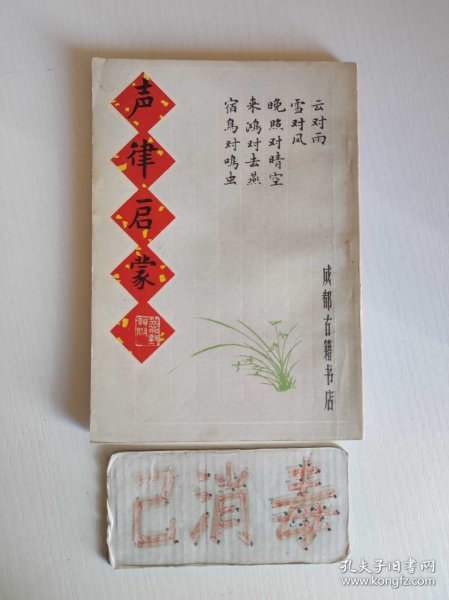 声律启蒙
云对雨
雪对风
晚照对晴空
来鸿对去燕
宿鸟对鸣虫
成都古籍书店
已消毒
孔夫子旧书网
www.kongfz.com